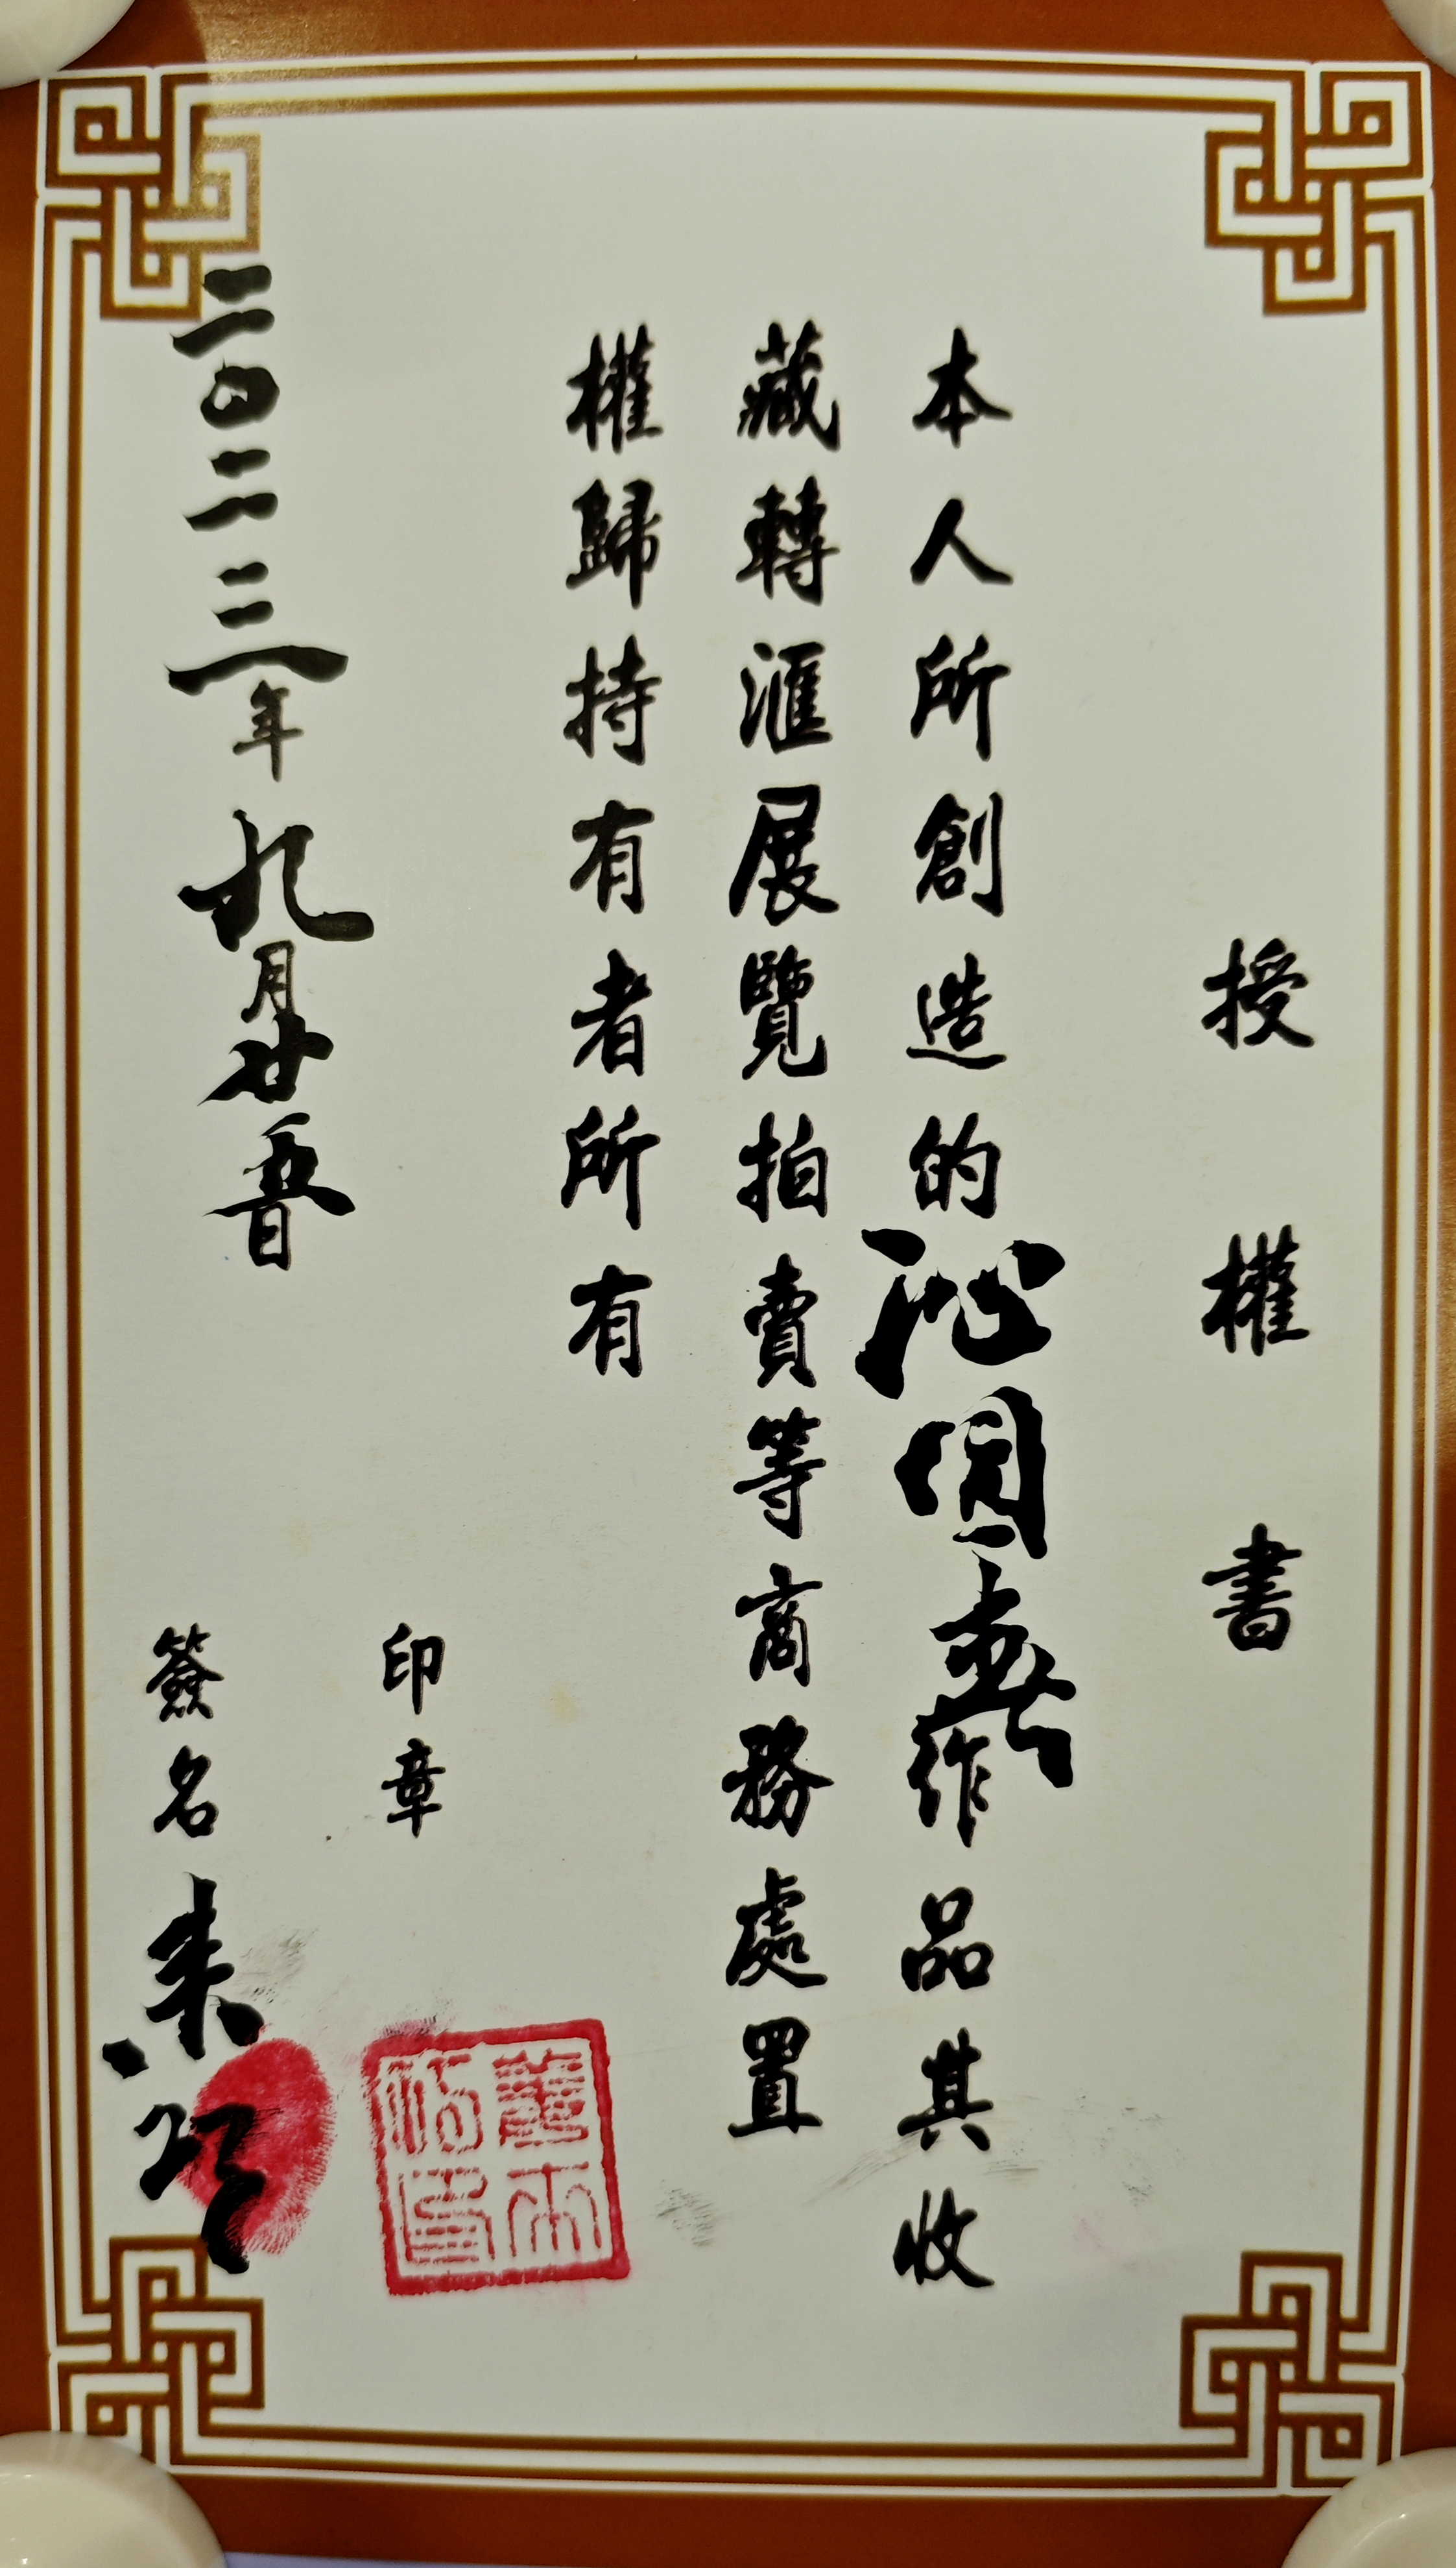 授權書
本人所創造的沁園春作品其收
藏轉滙展覽拍賣等商務處置
權歸持有者所有
印章
二〇二三年九月廿五日
簽名